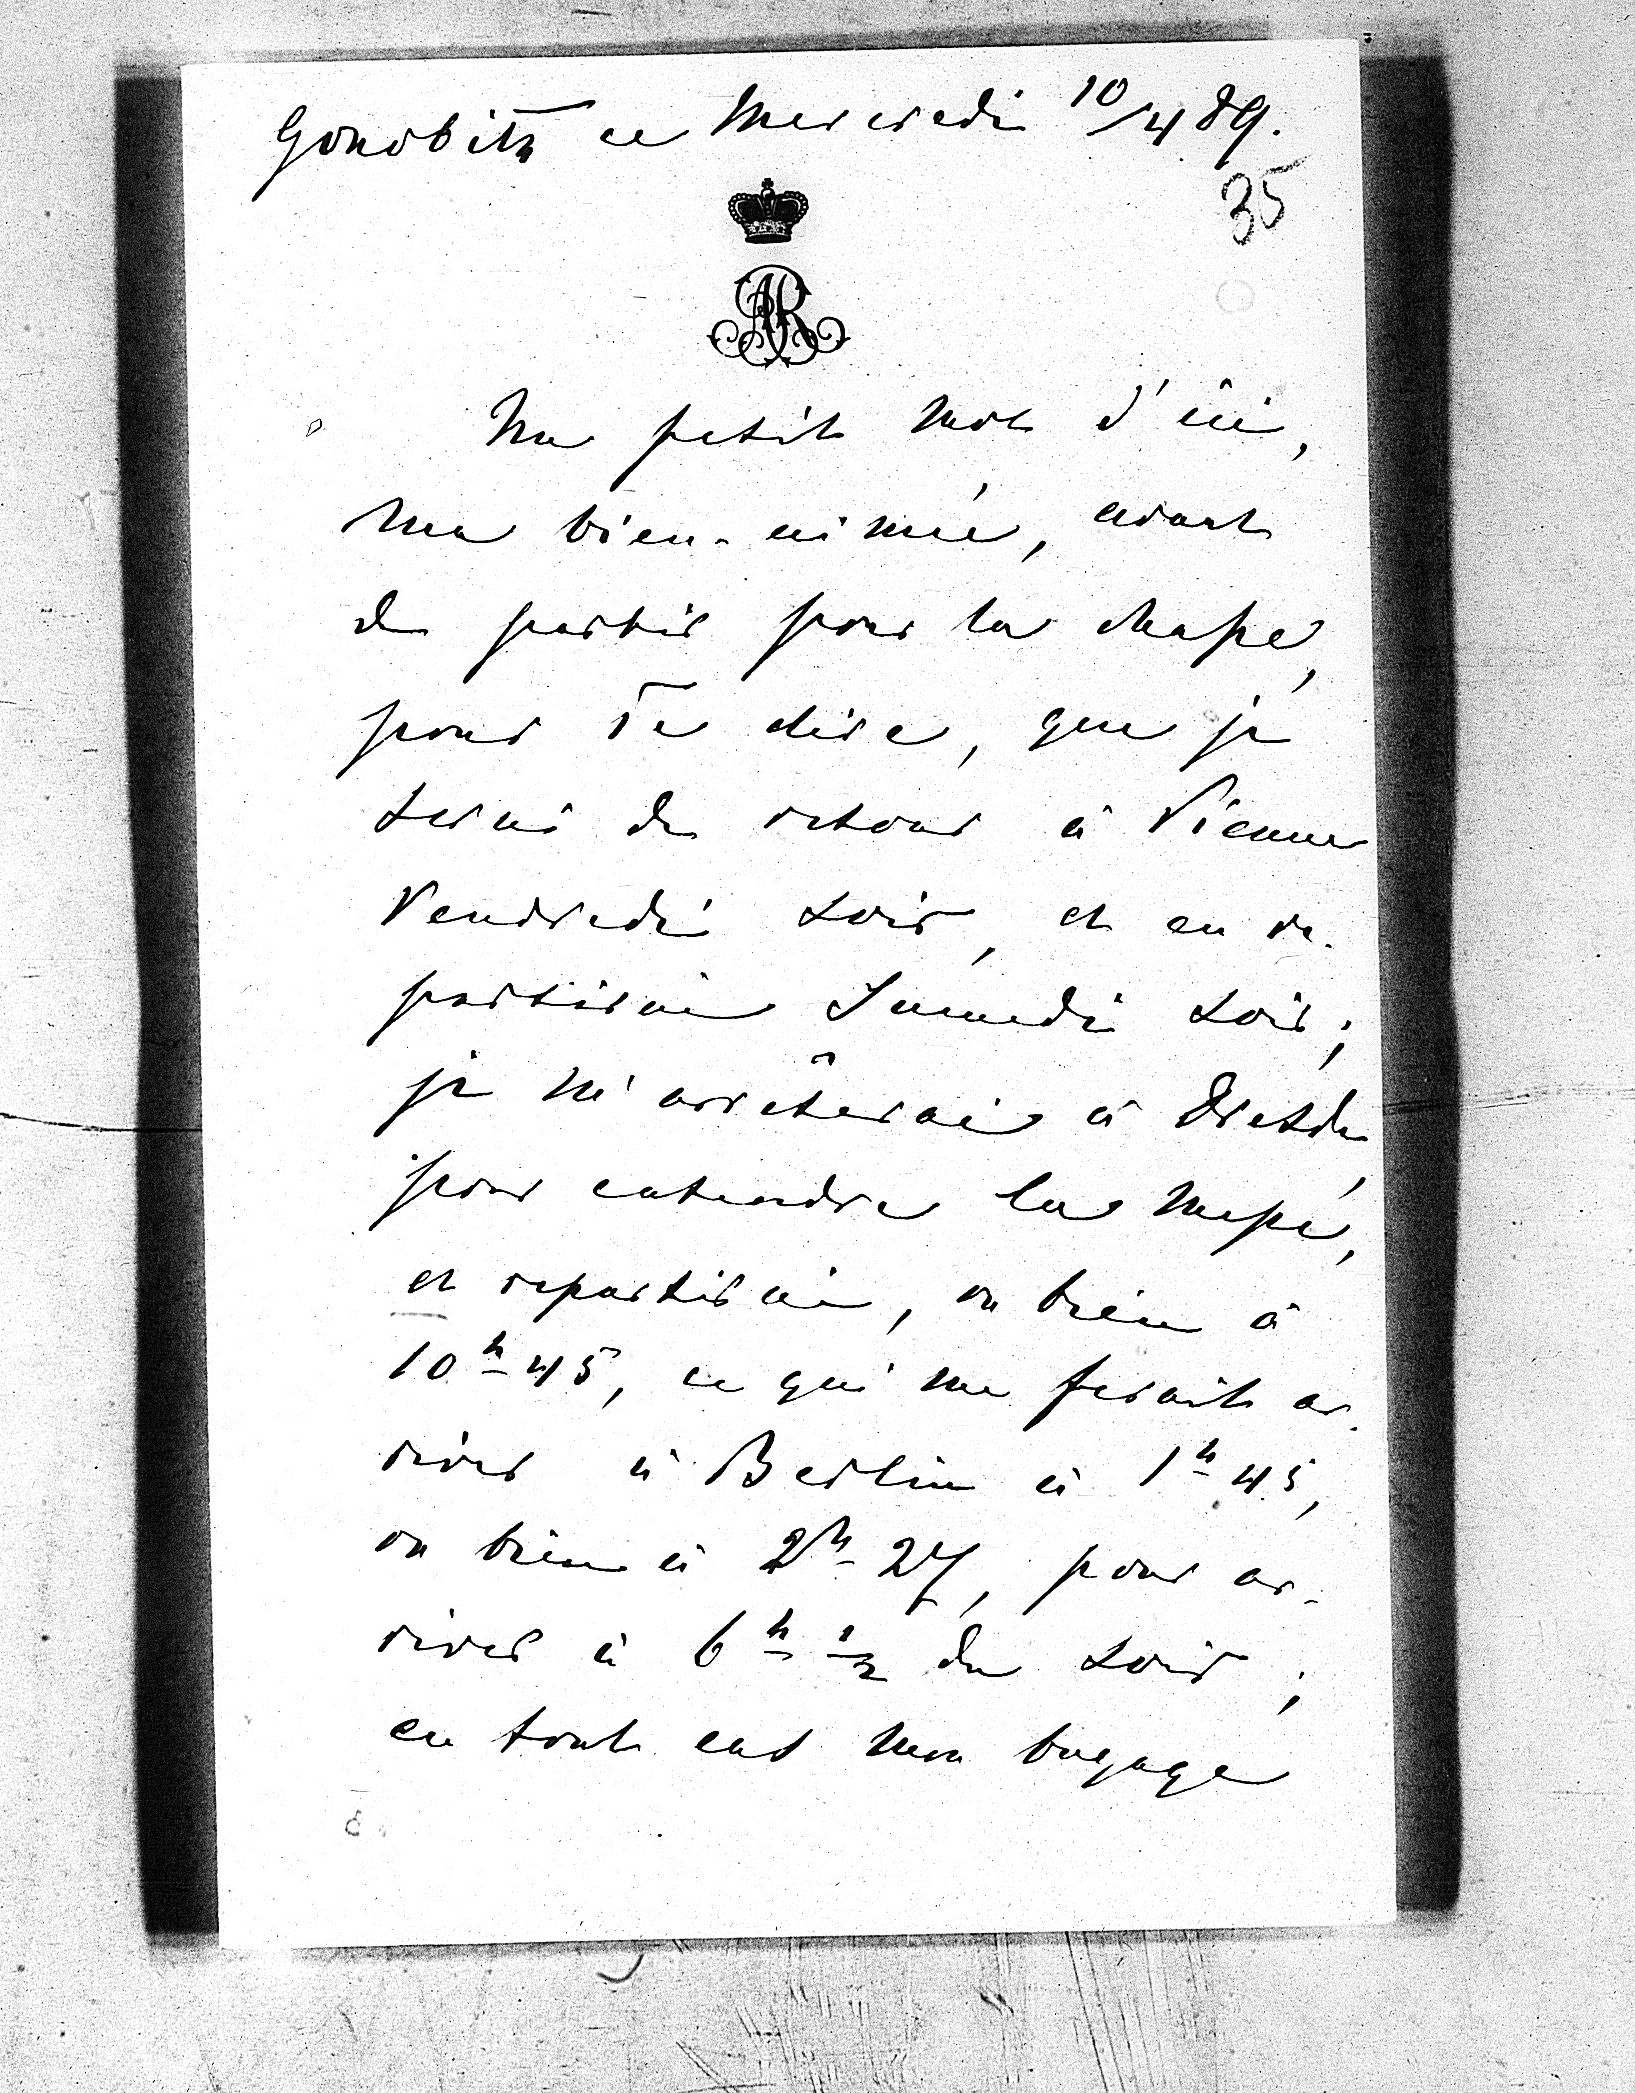 Gonobitz ce Mercredi 10/4 89.
35
AR
Un petit mot d'ici,
ma bien-aimée, avant
de partir pour la chasse,
pour Te dire, que je
serai de retour à Vienne
Vendredi soir, et en re-
partirai Samedi soir;
je m'arrêterai à Dresde,
pour entendre la messe,
et repartirai, ou bien à
10h 45, ce qui me ferait ar-
river à Berlin à 1h 45,
ou bien à 2h 27, pour ar-
river à 6h 1/2 du soir;
en tout cas mon bagage